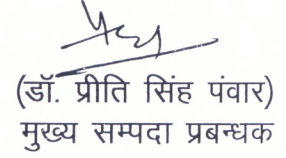 (डॉ. प्रीति सिंह पंवार)
मुख्य सम्पदा प्रबन्धक